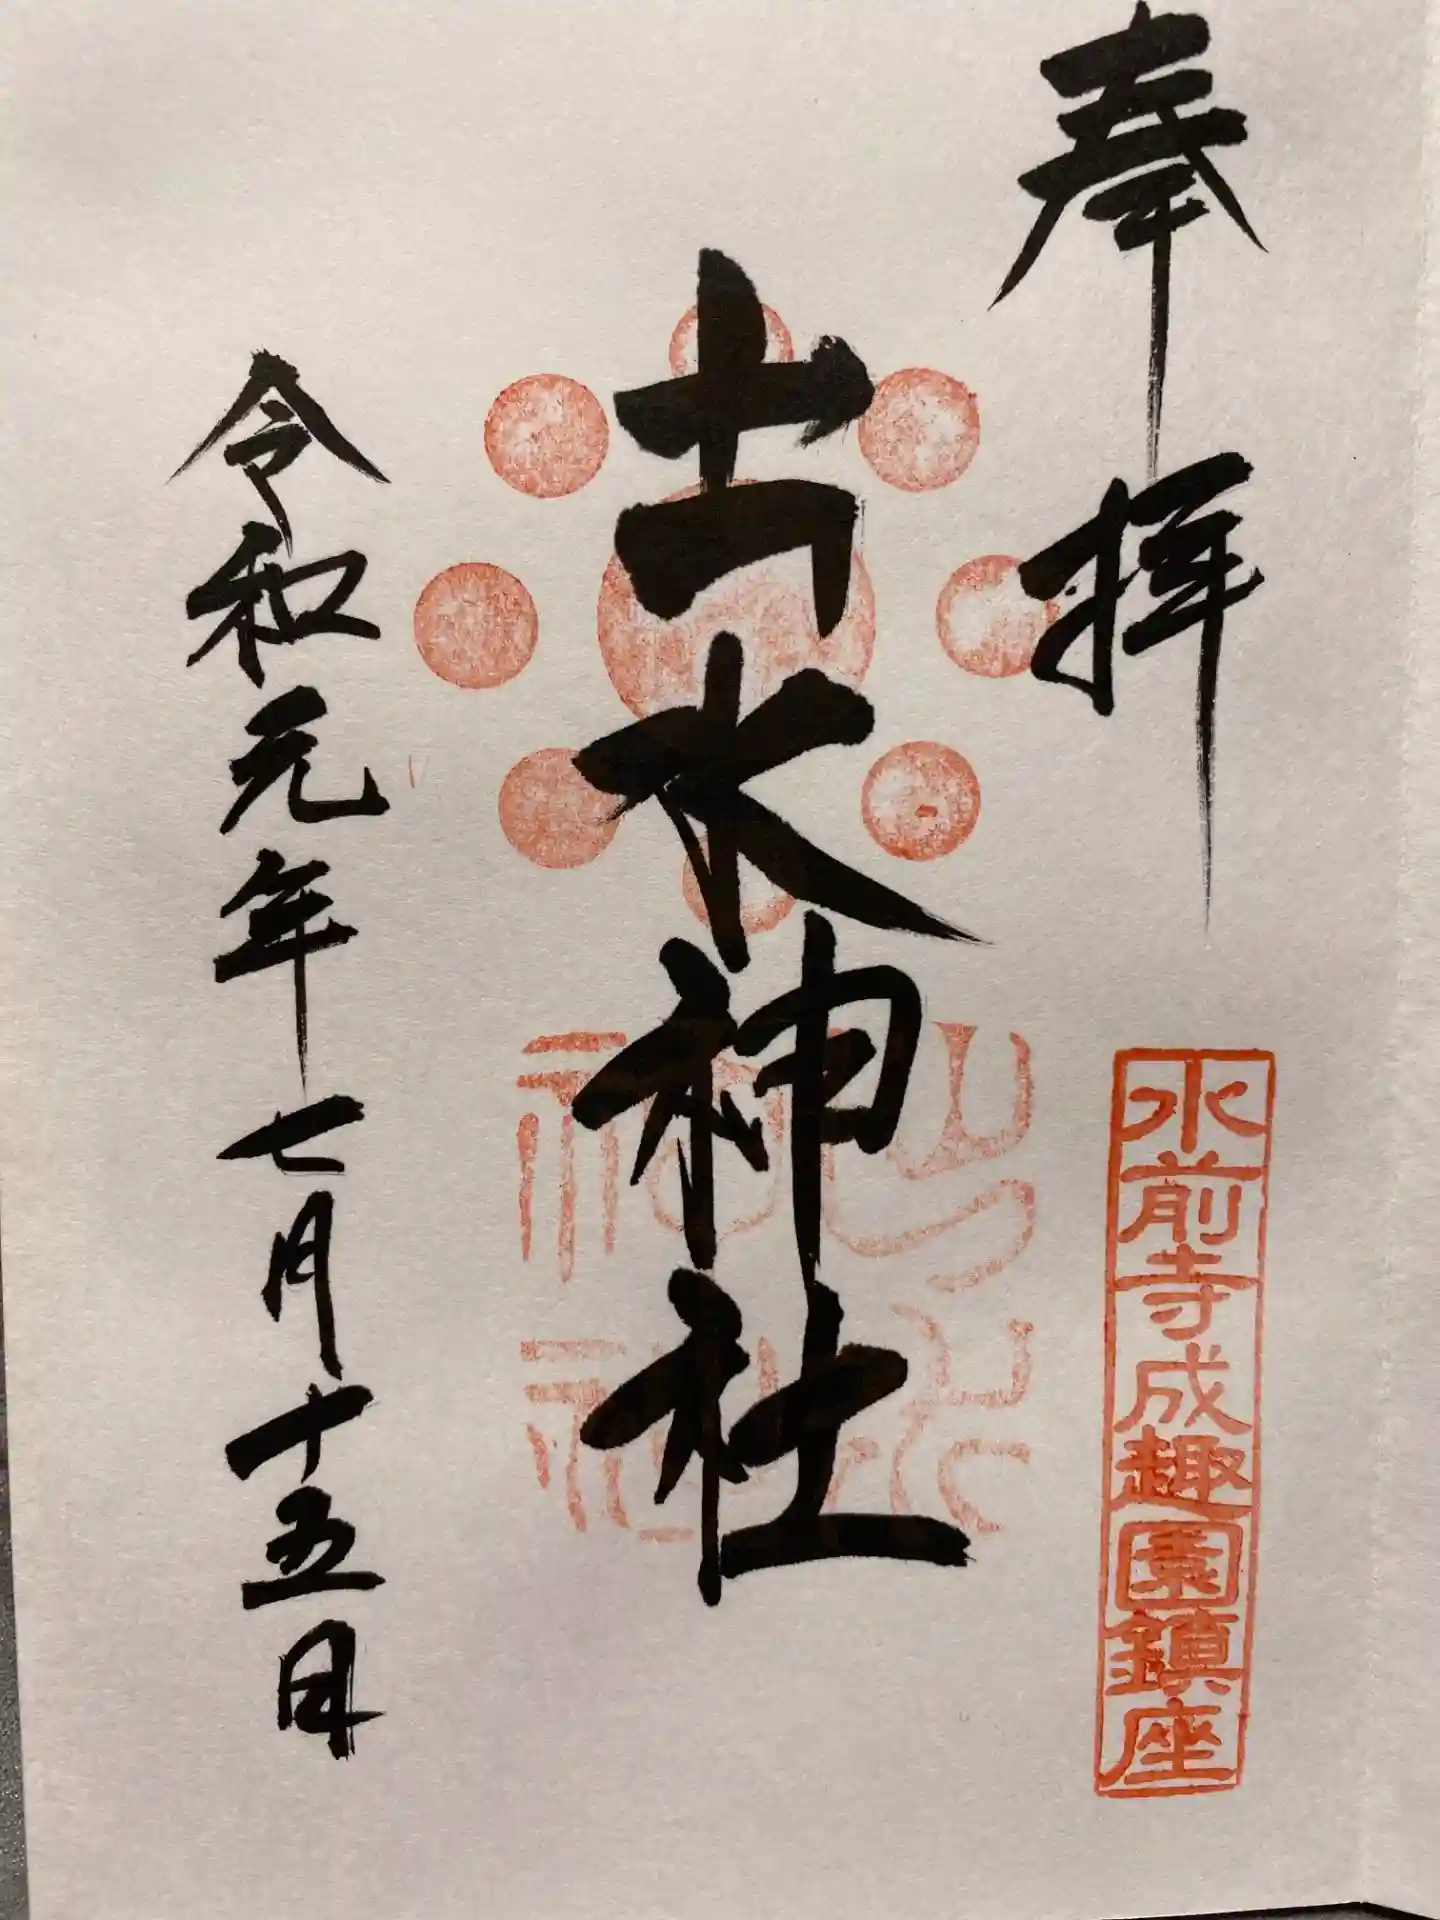 奉拝
水前寺成趣園鎮座
出水神社
出水
神社
令和元年七月十五日